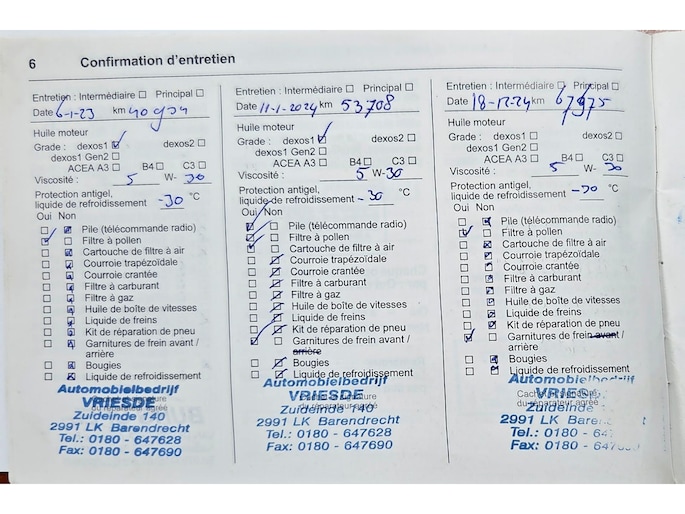 6 Confirmation d'entretien
Entretien : Intermédiaire □ Principal □
Date 6-1-23 km
Huile moteur
Grade : dexos1 ☑ dexos2 □
dexos1 Gen2 □
ACEA A3 □ B4 □ C3 □
Viscosité : 5 W- 30
Protection antigel,
liquide de refroidissement -30 °C
Oui Non
Pile (télécommande radio)
Filtre à pollen
Cartouche de filtre à air
Courroie trapézoïdale
Courroie crantée
Filtre à carburant
Filtre à gaz
Huile de boîte de vitesses
Liquide de freins
Kit de réparation de pneu
Garnitures de frein avant /
arrière
Bougies
Liquide de refroidissement
Automobielbedrijf
VRIESDE
du réparateur agréé
Zuideinde 140
2991 LK Barendrecht
Tel.: 0180 - 647628
Fax: 0180 - 647690
Entretien : Intermédiaire □ Principal □
Date 11-1-2024 km 53708
Huile moteur
Grade : dexos1 ☑ dexos2 □
dexos1 Gen2 □
ACEA A3 □ B4 □ C3 □
Viscosité : 5 W-30
Protection antigel,
liquide de refroidissement -30 °C
Oui Non
Pile (télécommande radio)
Filtre à pollen
Cartouche de filtre à air
Courroie trapézoïdale
Courroie crantée
Filtre à carburant
Filtre à gaz
Huile de boîte de vitesses
Liquide de freins
Kit de réparation de pneu
Garnitures de frein avant /
arrière
Bougies
Liquide de refroidissement
Automobielbedrijf
VRIESDE
du réparateur agréé
Zuideinde 140
2991 LK Barendrecht
Tel.: 0180 - 647628
Fax: 0180 - 647690
Entretien : Intermédiaire □ Principal □
Date 18-12-24 km 67975
Huile moteur
Grade : dexos1 ☑ dexos2 □
dexos1 Gen2 □
ACEA A3 □ B4 □ C3 □
Viscosité : 5 W- 30
Protection antigel,
liquide de refroidissement -30 °C
Oui Non
Pile (télécommande radio)
Filtre à pollen
Cartouche de filtre à air
Courroie trapézoïdale
Courroie crantée
Filtre à carburant
Filtre à gaz
Huile de boîte de vitesses
Liquide de freins
Kit de réparation de pneu
Garnitures de frein avant /
arrière
Bougies
Liquide de refroidissement
Automobielbedrijf
du réparateur agréé
Zuideinde 140
2991 LK
Tel.: 0180 -
Fax: 0180 -